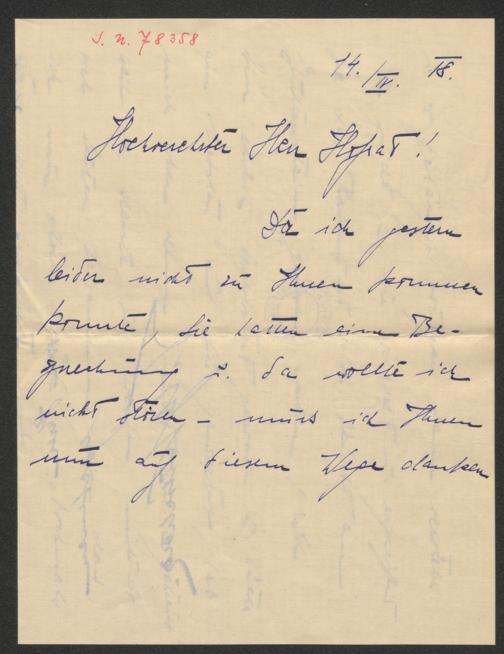 J. N. 78358
14./IV. 18.
Hochverehrter Herr Hofrat!
Da ich gestern
leider nicht zu Ihnen kommen
konnte, Sie hatten eine Be-
sprechung u. da wollte ich
nicht stören - muss ich Ihnen
nun auf diesem Wege danken